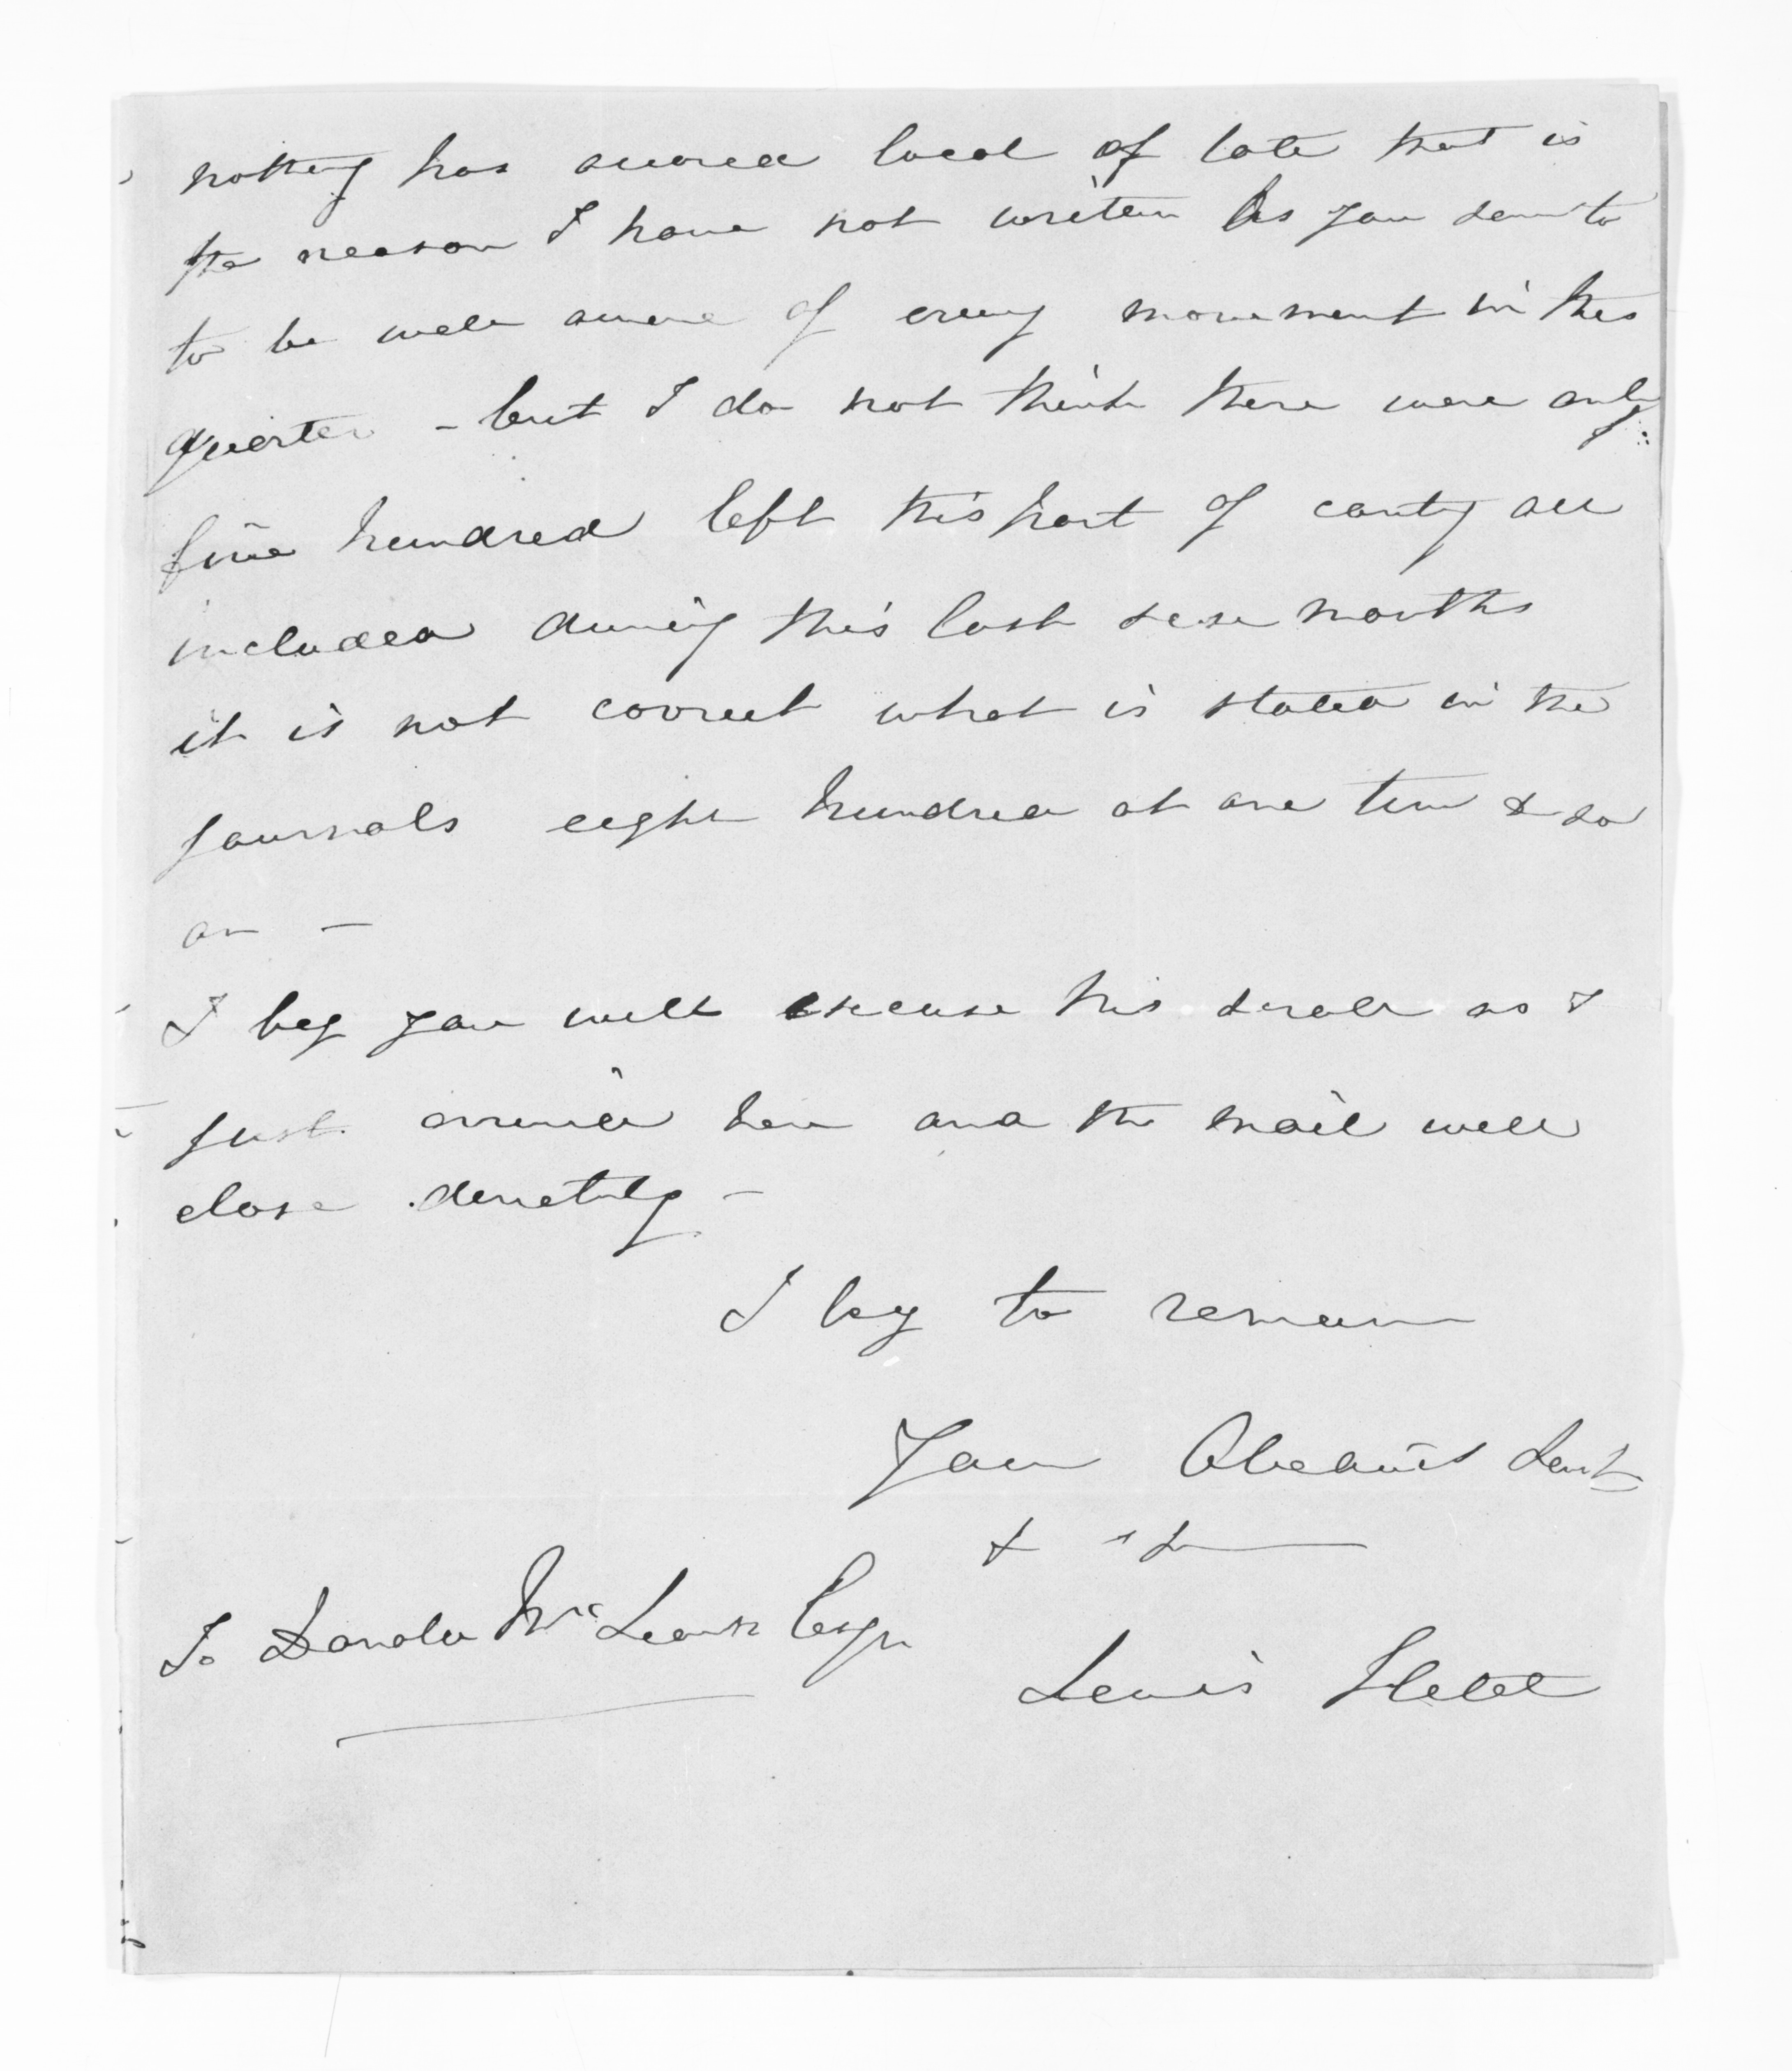 nothing has occured local of late that is
the reason I have not writen As you seem to
to be well aware of every movement in this
quarter - but I do not think there were only
five hundred left this part of contry all
included during this last six months
it is not correct what is stated in the
journals eight hundred at one time & so
on -
I beg you will excuse this scroll as I
just arrived here and the mail will
close directly -
I beg to remain
Your Obedient Sevt
&
To Donald McLean Esqr
Lewis Hetet